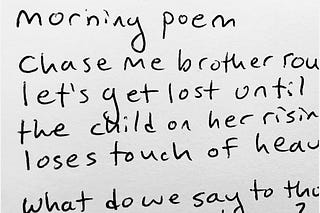 morning poem
chase me brother rou
let's get lost until
the child on her risin
loses touch of heav
what do we say to tho
?